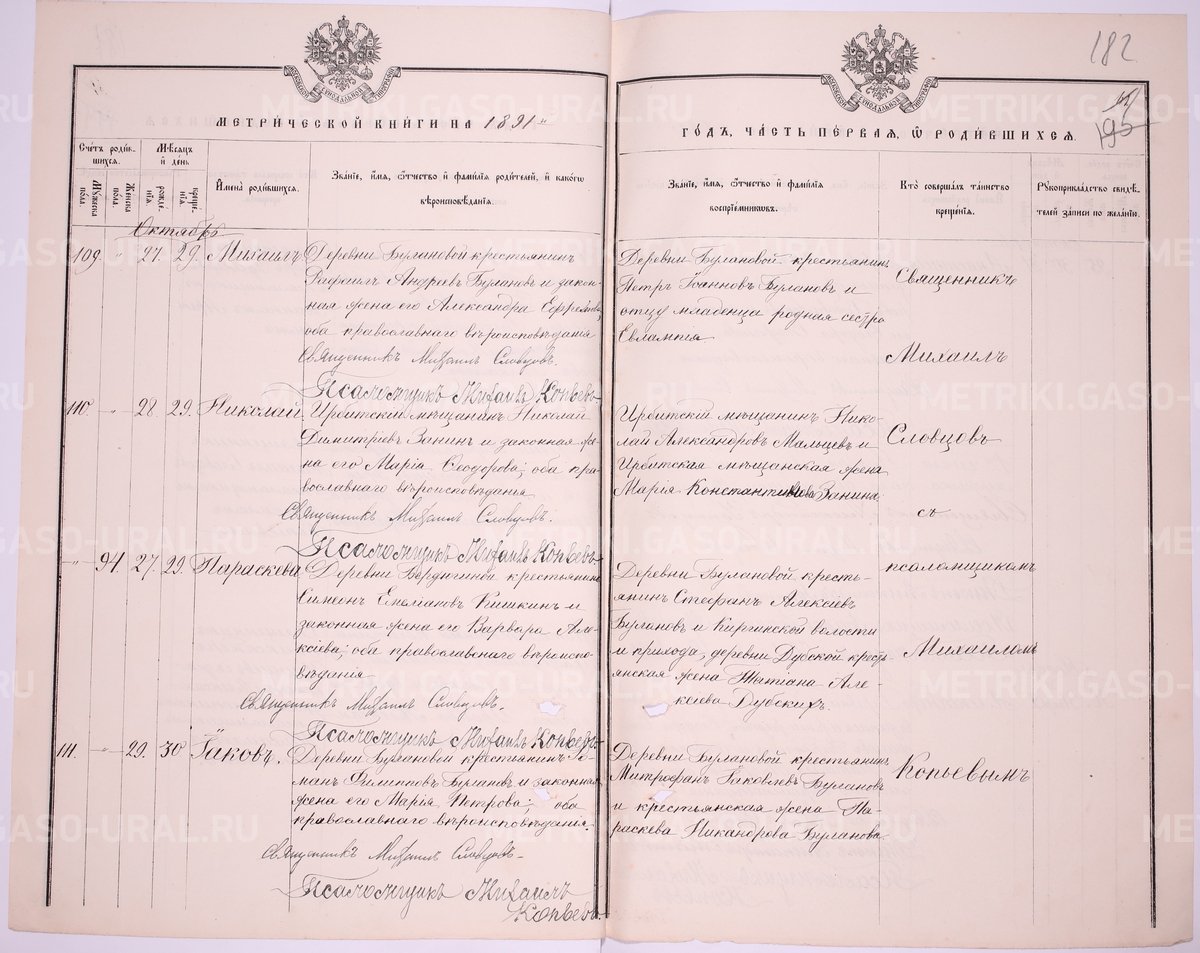 182
195
МЕТРИЧЕСКОЙ КНИГИ НА 1891
ГОДЪ, ЧАСТЬ ПЕРВАЯ, Ѿ РОДИВШИХСЯ.
Счетъ родив-
шихся.
Мѣсяцъ
и день.
Мужеска
пола.
Женска
пола.
рожде-
нія.
креще-
нія.
Имена родившихся.
Званіе, имя, отчество и фамилія родителей, и какого
вѣроисповѣданія.
Званіе, имя, отчество и фамилія
воспріемниковъ.
Кто совершалъ таинство
крещенія.
Рукоприкладство свидѣ-
телей записи по желанію.
Октябрь
109. " 27. 29. Михаилъ
Деревни Булановой крестьянинъ
Рафаилъ Андреевъ Булановъ и закон-
ная жена его Александра Ефремова,
оба православнаго вѣроисповѣданія
Священникъ Михаилъ Словцовъ.
Псаломщикъ Михаилъ Копьевъ
Деревни Булановой крестьянинъ
Петръ Іоанновъ Булановъ и
отцу младенца родная сестра
Евлампія
110. " 28. 29. Николай
Ирбитскій мѣщанинъ Николай
Димитріевъ Занинъ и законная же-
на его Марія Ѳеодорова; оба пра-
вославнаго вѣроисповѣданія
Священникъ Михаилъ Словцовъ.
Псаломщикъ Михаилъ Копьевъ
Ирбитскій мѣщанинъ Нико-
лай Александровъ Мальцевъ и
Ирбитская мѣщанская жена
Марія Константинова Занина
" 94 27. 29. Параскева
Деревни Бердюгиной крестьянинъ
Симеонъ Емеліановъ Кишкинъ и
законная жена его Варвара Але-
ксіева; оба православнаго вѣроиспо-
вѣданія
Священникъ Михаилъ Словцовъ.
Псаломщикъ Михаилъ Копьевъ
Деревни Булановой кресть-
янинъ Стефанъ Алексіевъ
Булановъ и Киргинской волости
и прихода, деревни Дубской кресть-
янская жена Татіана Але-
ксіева Дубскихъ.
111. " 29. 30 Іаковъ.
Деревни Булановой крестьянинъ Ро-
манъ Филипповъ Булановъ и законная
жена его Марія Петрова; оба
православнаго вѣроисповѣданія.
Священникъ Михаилъ Словцовъ
Псаломщикъ Михаилъ
Копьевъ
Деревни Булановой крестьянинъ
Митрофанъ Іаковлевъ Булановъ
и крестьянская жена Па-
раскева Никандрова Буланова.
Священникъ
Михаилъ
Словцовъ
съ
псаломщикомъ
Михаиломъ
Копьевымъ
METRIKI.GASO-URAL.RU